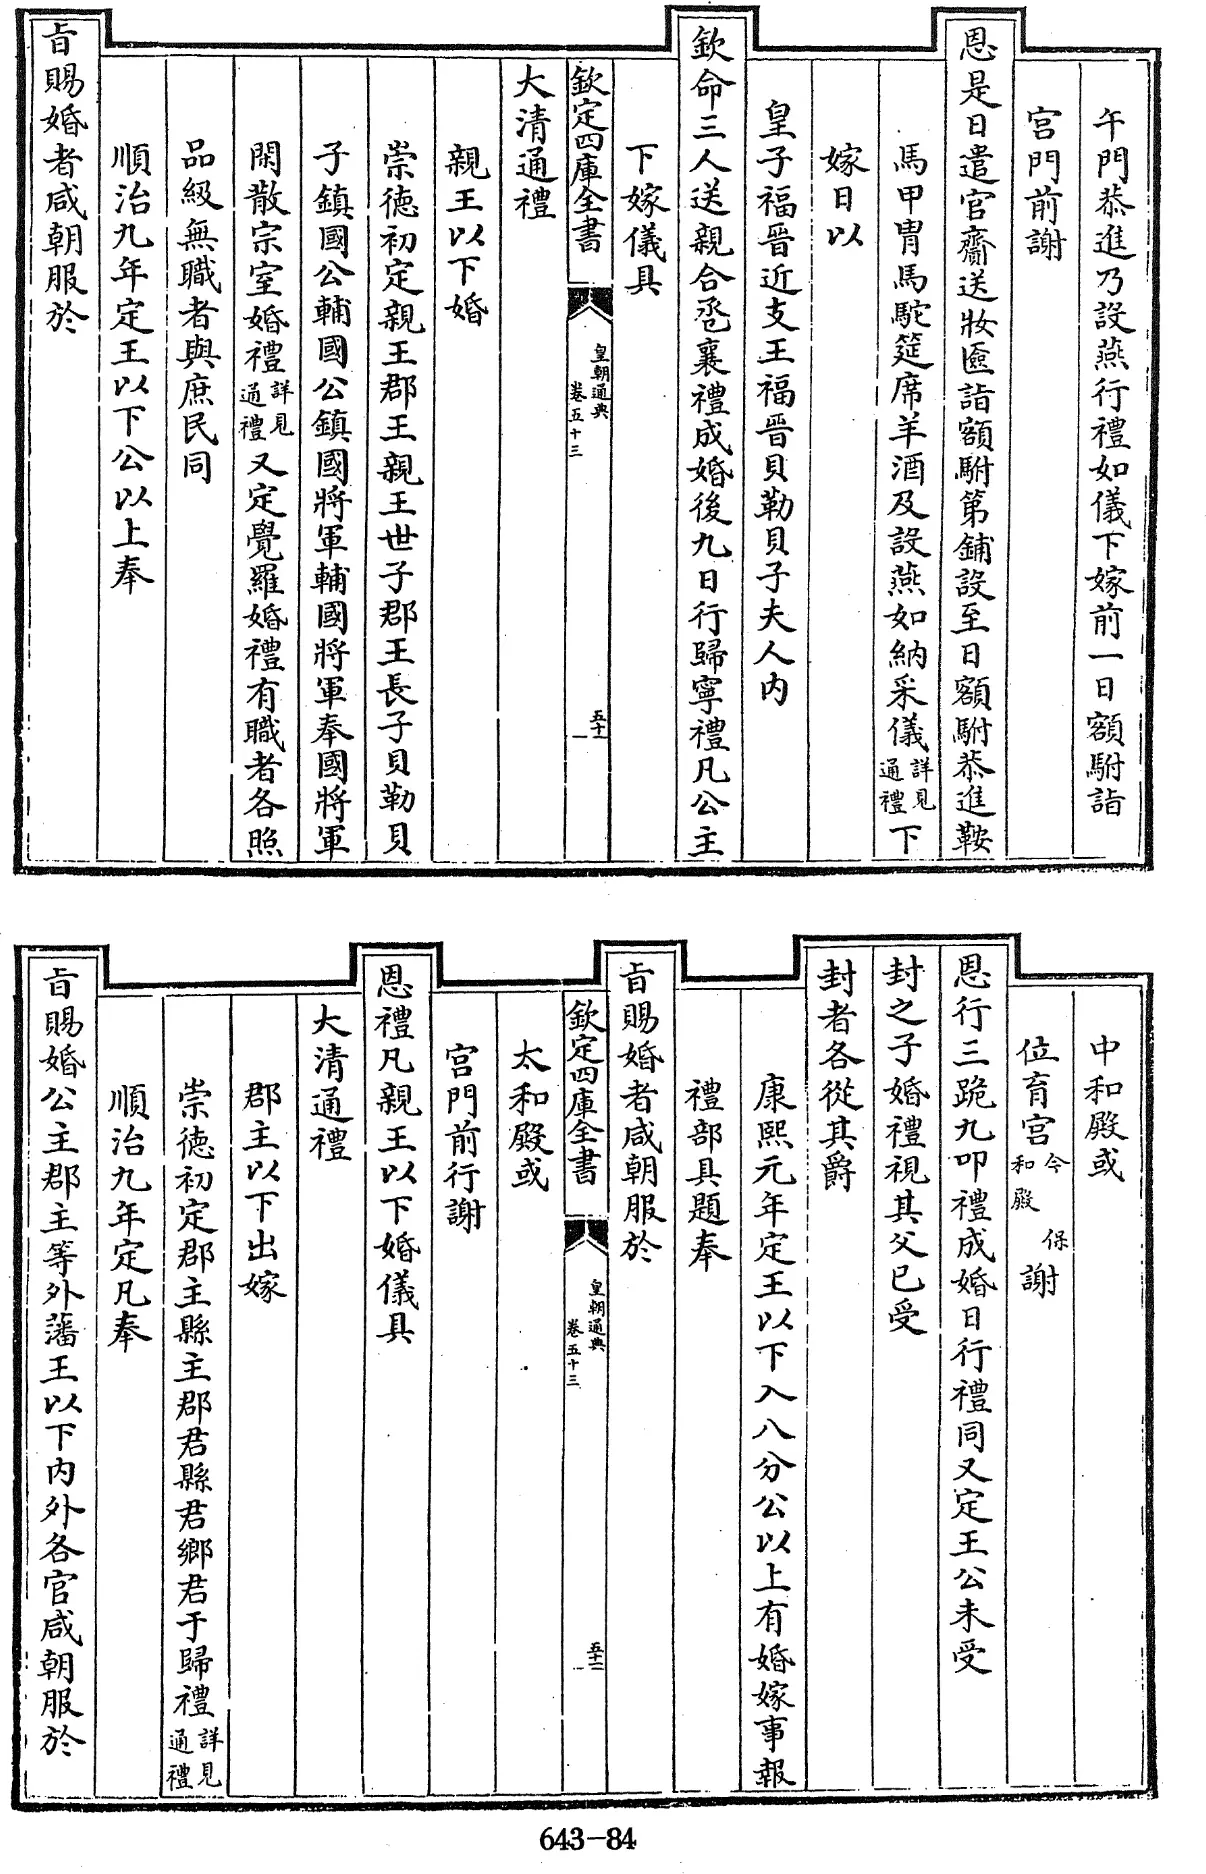 午門恭進乃設燕行禮如儀下嫁前一日額駙詣
宫門前謝
恩是日遣官齎送妝匳詣額駙第鋪設至日額駙恭進鞍
馬甲胄馬駝筵席羊酒及設燕如納采儀詳見通禮下
嫁日以
皇子福晉近支王福晉貝勒貝子夫人内
欽命三人送親合巹襄禮成婚後九日行歸寧禮凡公主
下嫁儀具
欽定四庫全書
皇朝通典
卷五十三
大清通禮
親王以下婚
崇徳初定親王郡王親王世子郡王長子貝勒貝
子鎮國公輔國公鎮國將軍輔國將軍奉國將軍
閑散宗室婚禮詳見通禮又定覺羅婚禮有職者各照
品級無職者與庶民同
順治九年定王以下公以上奉
㫖賜婚者咸朝服於
中和殿或
位育宫今保和殿謝
恩行三跪九叩禮成婚日行禮同又定王公未受
封之子婚禮視其父已受
封者各從其爵
康熙元年定王以下入八分公以上有婚嫁事報
禮部具題奉
㫖賜婚者咸朝服於
欽定四庫全書
皇朝通典
卷五十三
太和殿或
宫門前行謝
恩禮凡親王以下婚儀具
大清通禮
郡主以下出嫁
崇徳初定郡主縣主郡君縣君鄉君于歸禮詳見通禮
順治九年定凡奉
㫖賜婚公主郡主等外藩王以下内外各官咸朝服於
643-84